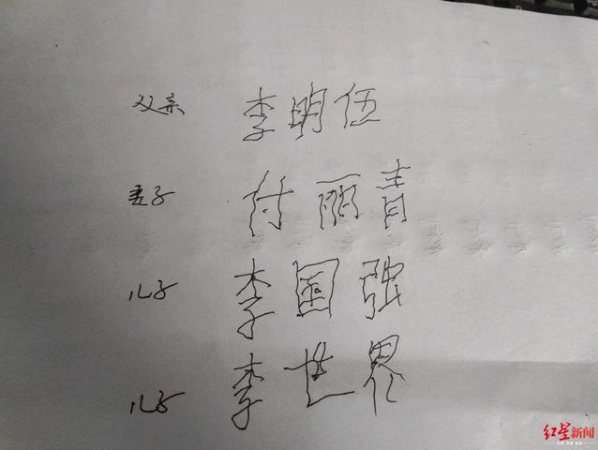 父亲 李明伍
妻子 付丽青
儿子 李国强
儿子 李世界
红星新闻